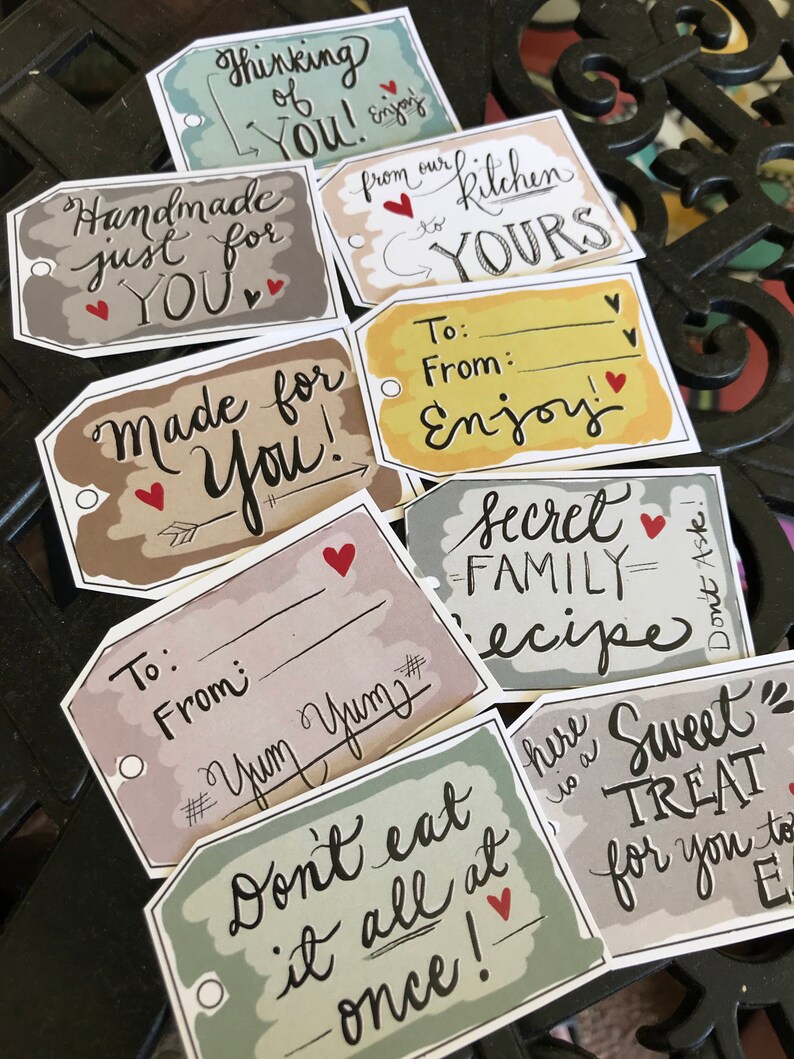 Thinking
of
YOU!
Enjoy!
from our
kitchen
to
YOURS
Handmade
just for
YOU
To:
From:
Enjoy!
Made for
You!
Secret
FAMILY
recipe
Don't Ask!
To:
From:
#Yum Yum#
here
is a
Sweet
TREAT
for you to
Don't eat
it all at
once!